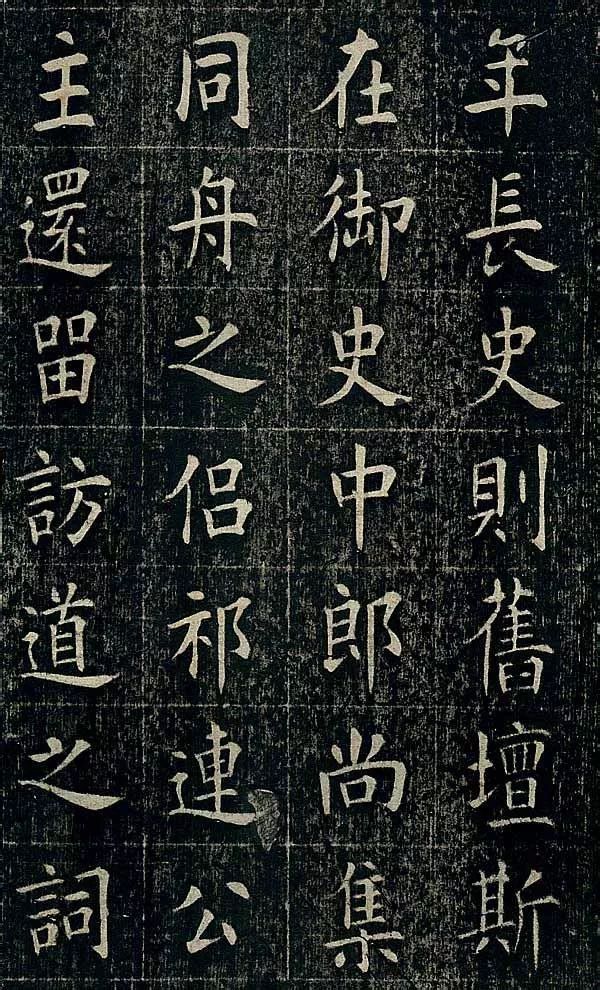 年長史則舊壇斯
在御史中郎尚集
同舟之侶祁連公
主還留訪道之詞